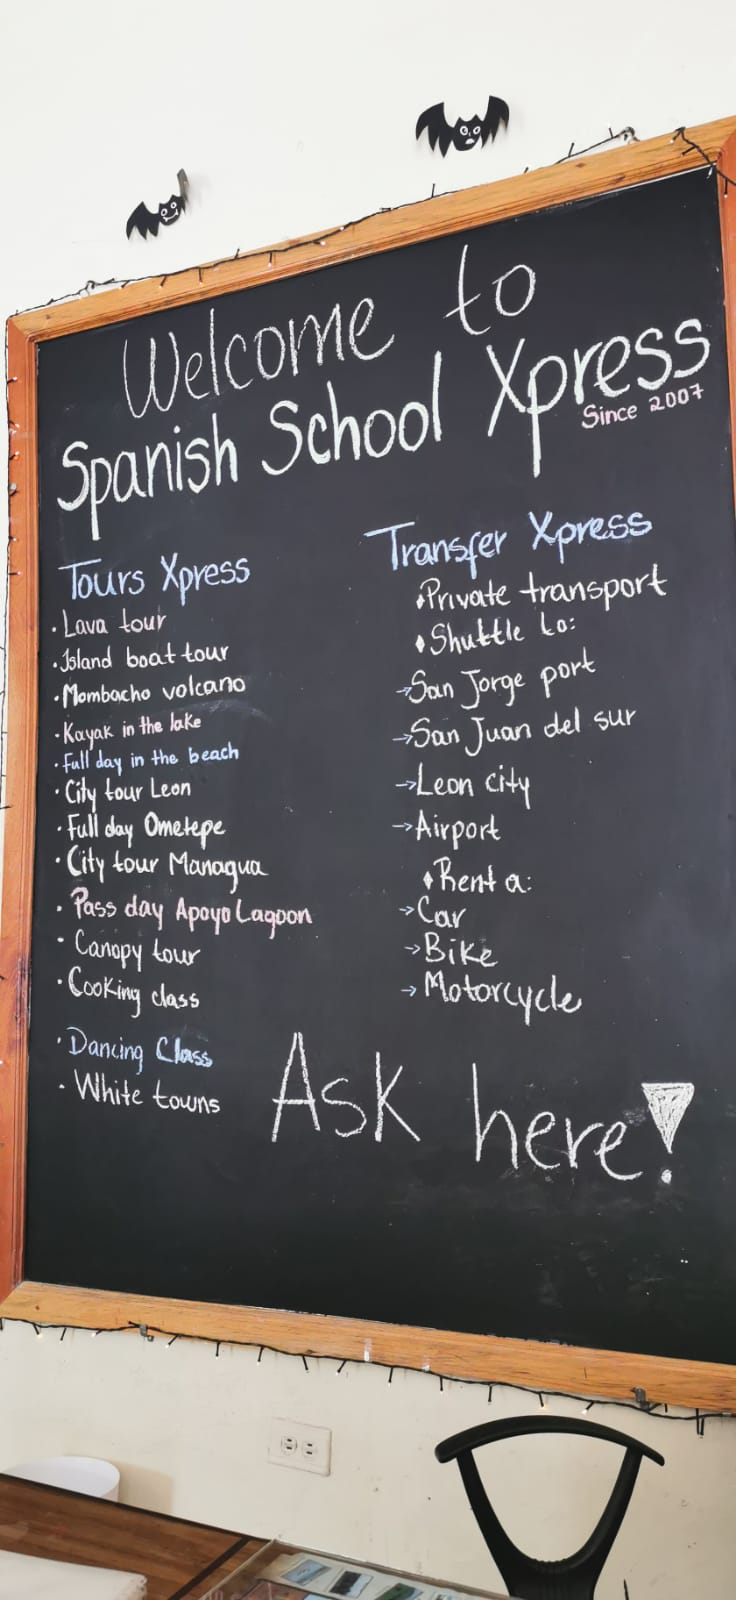 Welcome to
Spanish School Xpress
Since 2007
Tours Xpress
· Lava tour
· Island boat tour
· Mombacho volcano
· Kayak in the lake
· Full day in the beach
· City tour Leon
· Full day Ometepe
· City tour Managua
· Pass day Apoyo Lagoon
· Canopy tour
· Cooking class
· Dancing Class
· White towns
Transfer Xpress
♦Private transport
♦Shuttle to:
→San Jorge port
→San Juan del sur
→Leon city
→Airport
♦Rent a:
→Car
→Bike
→Motorcycle
Ask here!